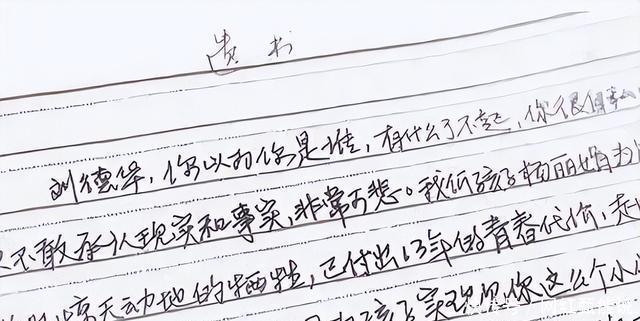 遗书
刘德华，你以为你是谁，有什么了不起，你很自
不敢承认现实和事实，非常可悲。我低孩子杨丽娟为
惊天动地的牺牲，已付出13年的青春代价，走
孩子实现见你这么个小